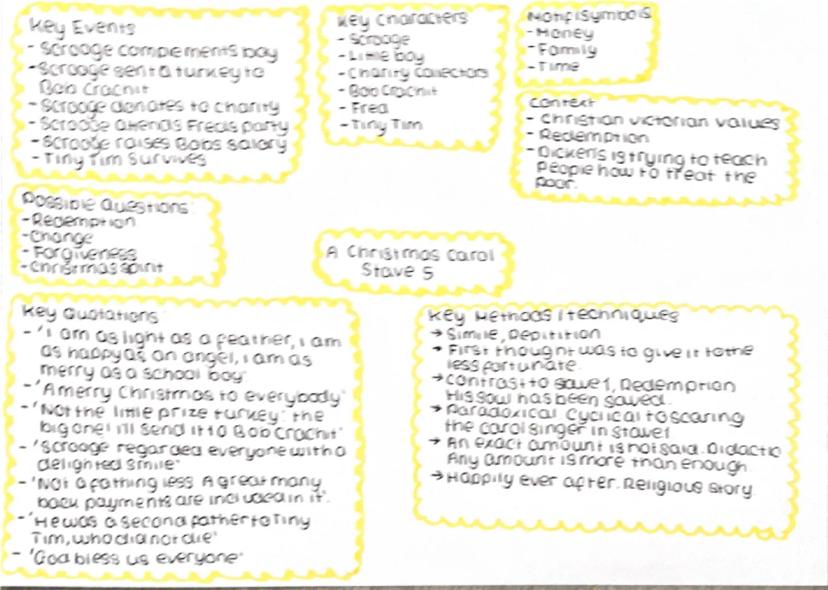 Key Events
- Scrooge complements boy
- Scrooge sent a turkey to
Bob Crachit
- Scrooge donates to charity
- Scrooge attends Freds party
- Scrooge raises Bobs salary
- Tiny Tim Survives
Key Characters
- Scrooge
- Little boy
- Charity Collectors
- Bob Crachit
- Fred
- Tiny Tim
Motifs/Symbols
- Money
- Family
- Time
Context
- Christian victorian values
- Redemption
- Dickens is trying to teach
people how to treat the
poor.
Possible Questions
- Redemption
- Change
- Forgiveness
- Christmas spirit
A Christmas Carol
Stave 5
Key Quotations
- 'I am as light as a feather, i am
as happy as an angel, i am as
merry as a school boy'
- 'A merry Christmas to everybody'
- 'Not the little prize turkey: the
big one! I'll send it to Bob Crachit'
- 'Scrooge regarded everyone with a
delighted smile'
- 'Not a fathing less. A great many
back payments are included in it'.
- 'He was a second father to Tiny
Tim, who did not die'
- 'God bless us everyone'
Key Methods / techniques
→ Simile, Repitition
→ First thought was to give it to the
less fortunate.
→ Contrast to stave 1, Redemption
His soul has been saved.
→ Paradoxical. Cyclical to scaring
the carol singer in stave 1
→ An exact amount is not said. Didactic
Any amount is more than enough
→ Happily ever after. Religious story